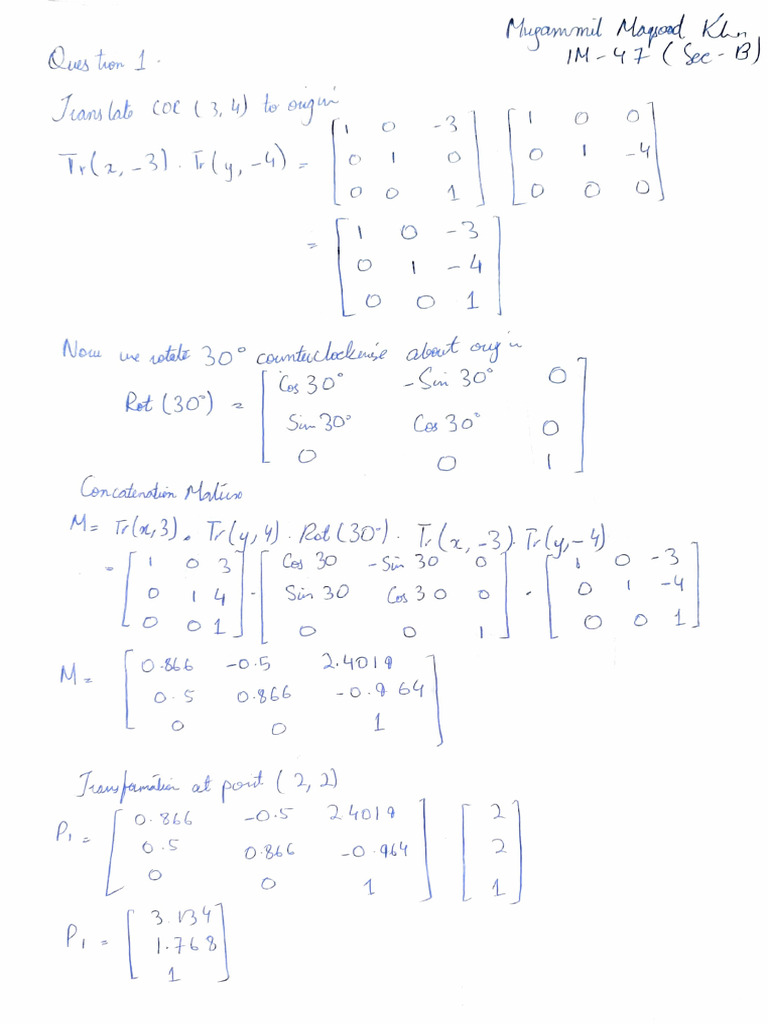 Mugammil Maqsood Khan
IM-47 (Sec-B)
Question 1.
Translate COC (3,4) to origin
Tr(x,-3) . Tr(y,-4) = [1 0 -3] [1 0 0]
[0 1 0] [0 1 -4]
[0 0 1] [0 0 0]
= [1 0 -3]
[0 1 -4]
[0 0 1]
Now we rotate 30° counterclockwise about origin
Rot (30°) = [Cos 30° -Sin 30° 0]
[Sin 30° Cos 30° 0]
[0 0 1]
Concatenation Matrix
M = Tr(x,3) . Tr(y,4) . Rot(30°) . Tr(x,-3) . Tr(y,-4)
= [1 0 3] . [Cos 30 -Sin 30 0] . [1 0 -3]
[0 1 4] [Sin 30 Cos 30 0] [0 1 -4]
[0 0 1] [0 0 1] [0 0 1]
M = [0.866 -0.5 2.4019]
[0.5 0.866 -0.964]
[0 0 1]
Transformation at point (2,2)
P1 = [0.866 -0.5 2.4019] [2]
[0.5 0.866 -0.964] [2]
[0 0 1] [1]
P1 = [3.134]
[1.768]
[1]